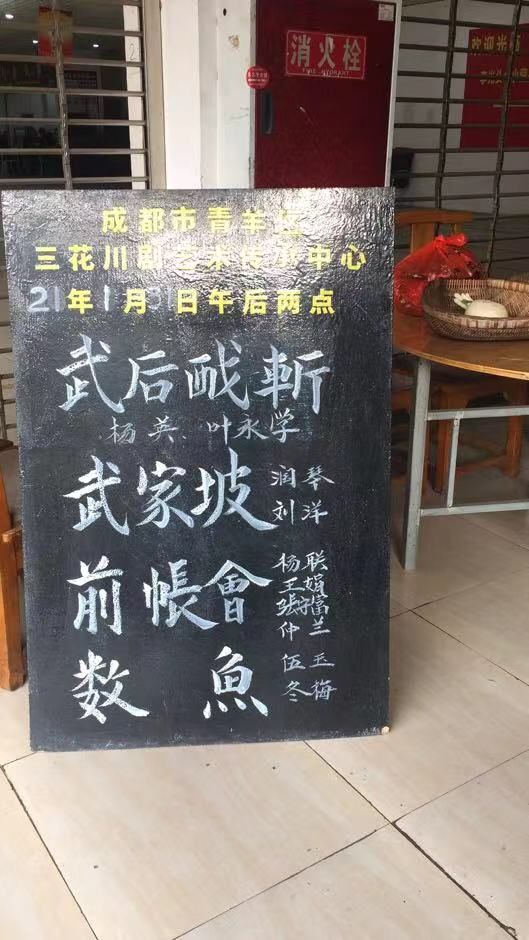 消火栓
FIRE HYDRANT
欢迎光
成都市青羊区
三花川剧艺术传承中心
21年1月日午后两点
武后 斬
杨英 叶永学
武家坡
润琴
刘洋
前帳會
杨联
王娟
張守富
仲兰
数魚
伍玉
冬梅